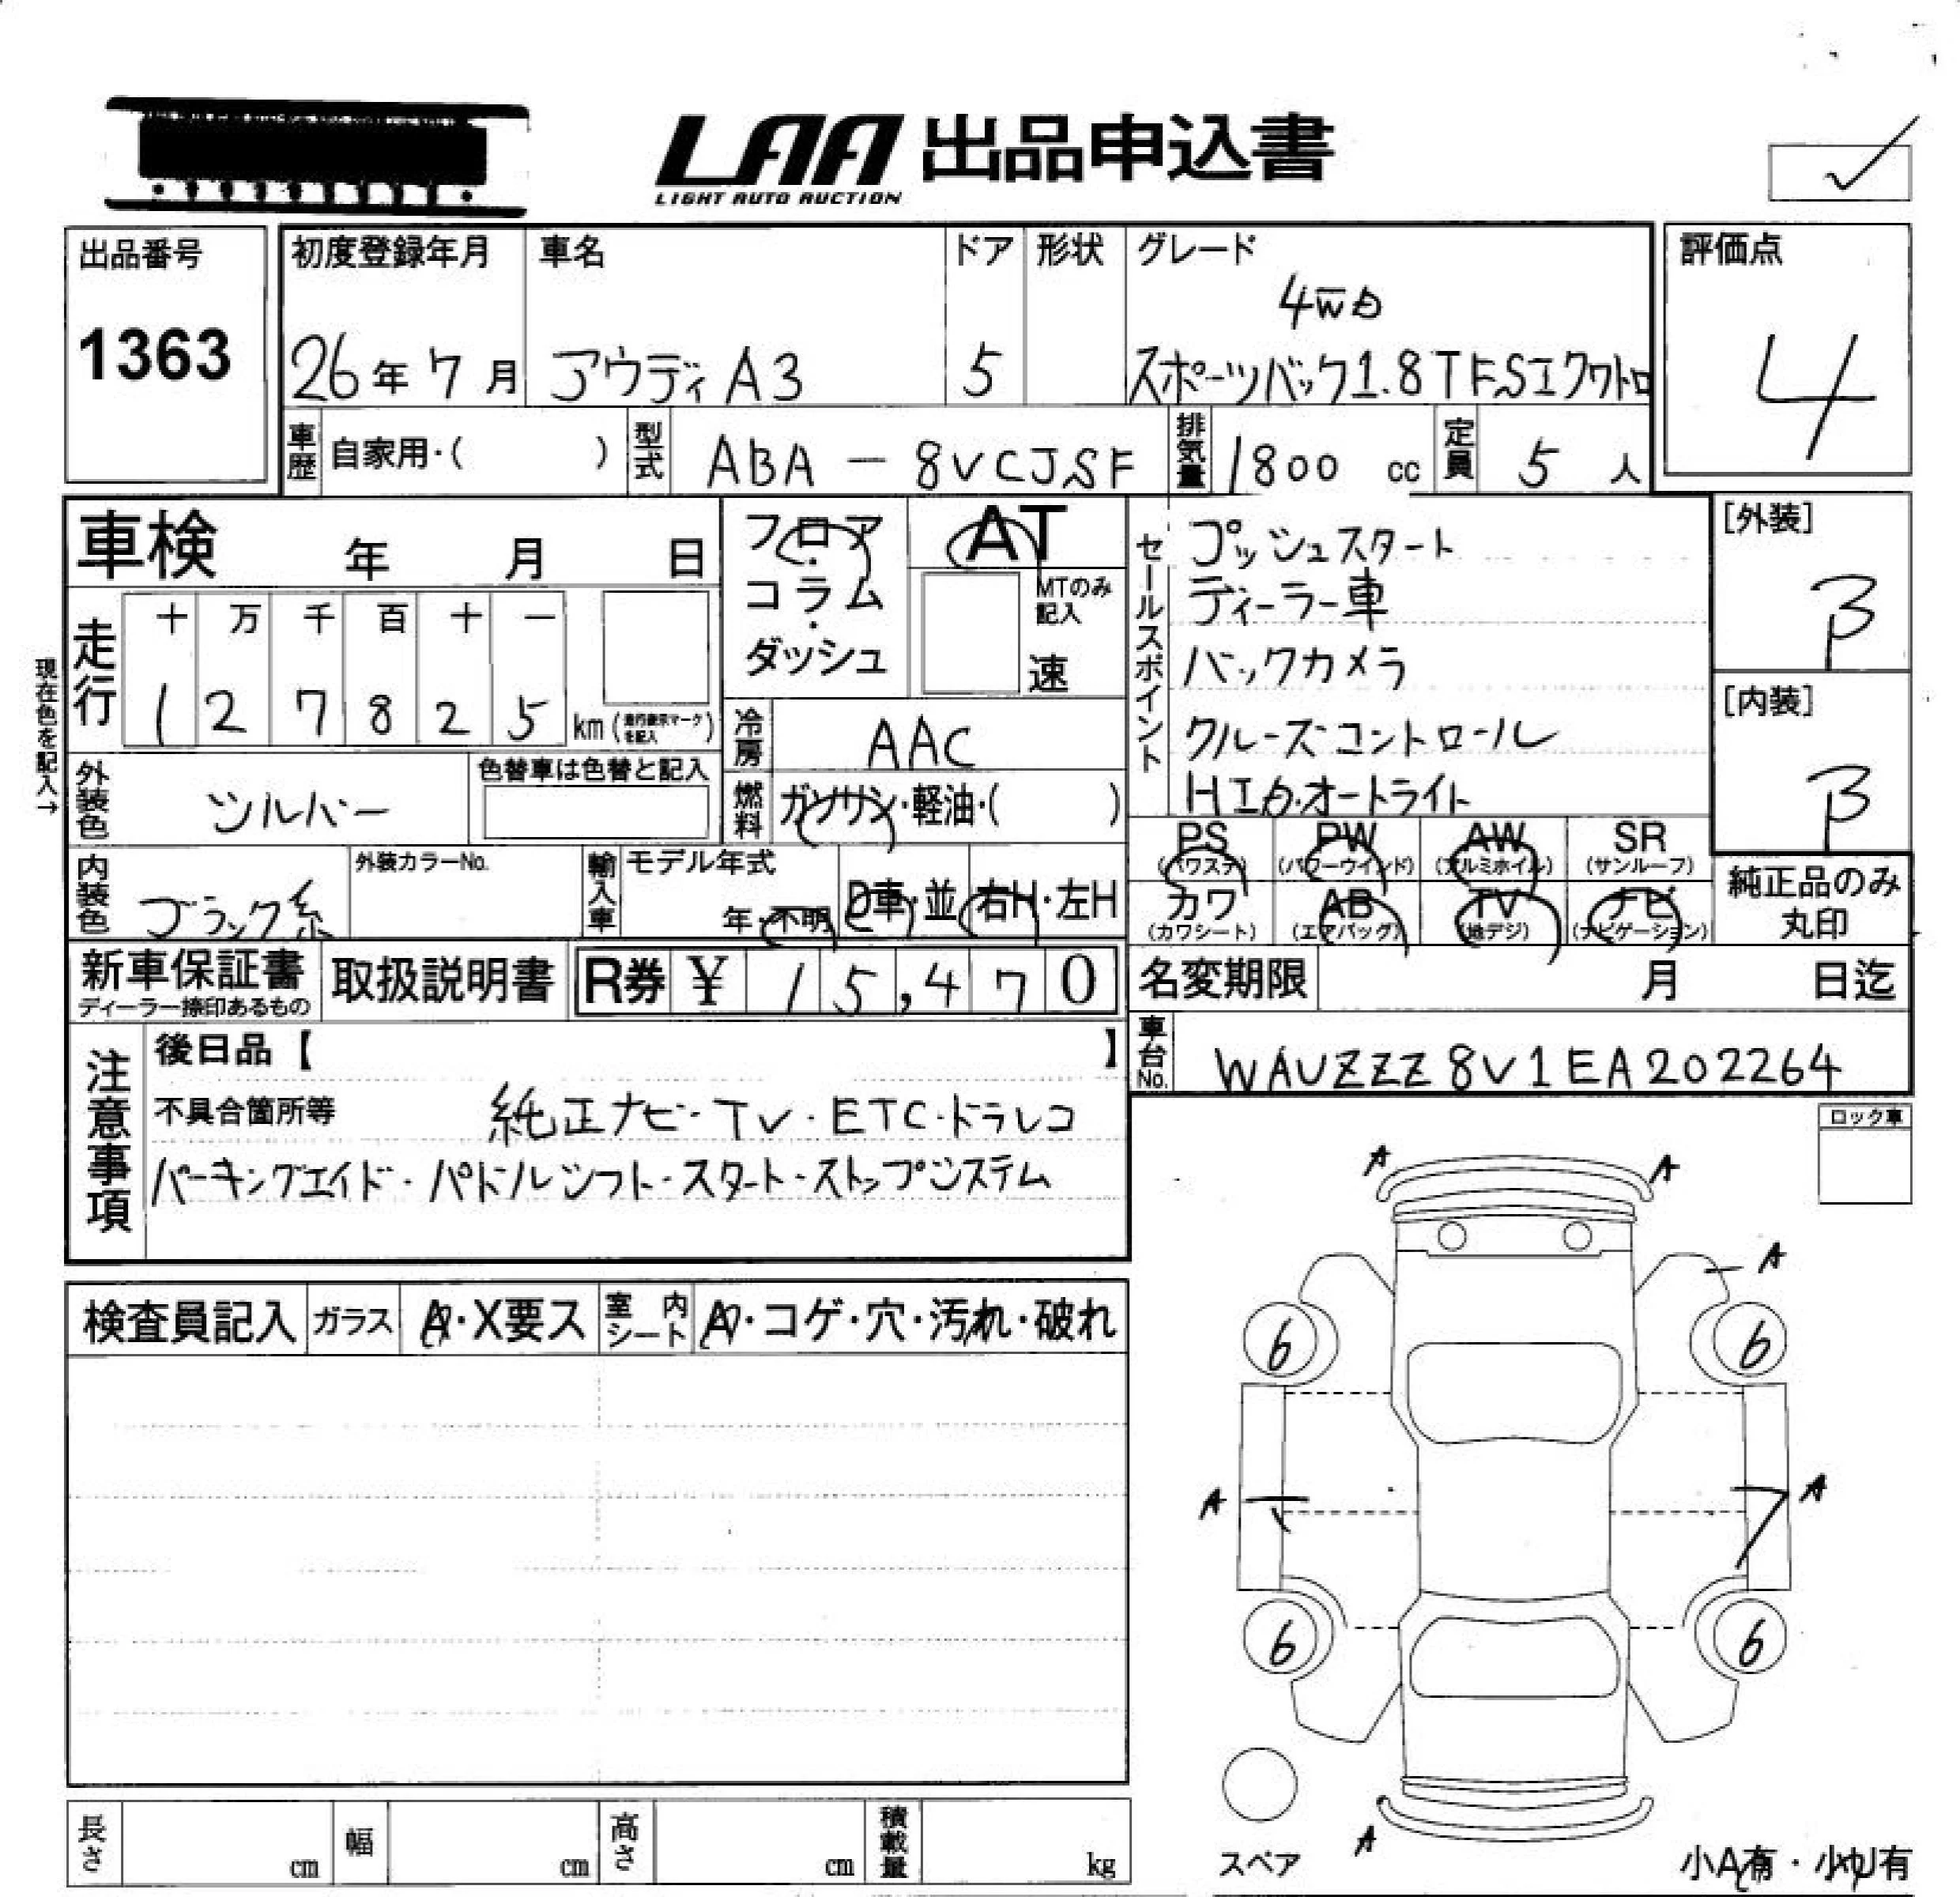 LAA 出品申込書
LIGHT AUTO AUCTION
出品番号
1363
初度登録年月
26年7月
車名
アウディA3
ドア
5
形状
グレード
4WD
スポーツバック1.8TFSIクワトロ
評価点
4
車歴 自家用・( )
型式 ABA-8VCJSF
排気量 1800 cc
定員 5 人
車検 年 月 日
フロア・コラム・ダッシュ
AT
MTのみ記入
速
セールスポイント
プッシュスタート
ディーラー車
バックカメラ
クルーズコントロール
HID.オートライト
[外装]
B
[内装]
B
現在色を記入→
走行
十 万 千 百 十 一
1 2 7 8 2 5 km (走行表示マークを記入)
冷房 AAC
外装色 シルバー
色替車は色替と記入
燃料 ガソリン・軽油・( )
PS (パワステ)
PW (パワーウインド)
AW (アルミホイル)
SR (サンルーフ)
カワ (カワシート)
AB (エアバッグ)
TV (地デジ)
ナビ (ナビゲーション)
純正品のみ丸印
内装色 ブラック系
外装カラーNo.
輸入車 モデル年式
年・不明
D車・並
右H・左H
新車保証書
ディーラー捺印あるもの
取扱説明書
R券 ¥ 15,470
名変期限 月 日迄
車台No. WAUZZZ8V1EA202264
注意事項
後日品【 】
不具合箇所等 純正ナビ・TV・ETC・ドラレコ
パーキングエイド・パドルシフト・スタート・ストップシステム
ロック車
検査員記入
ガラス A・X要ス
室内シート A・コゲ・穴・汚れ・破れ
A A
A
6 6
A A
6 6
A
スペア
小A有・小U有
長さ cm
幅 cm
高さ cm
積載量 kg